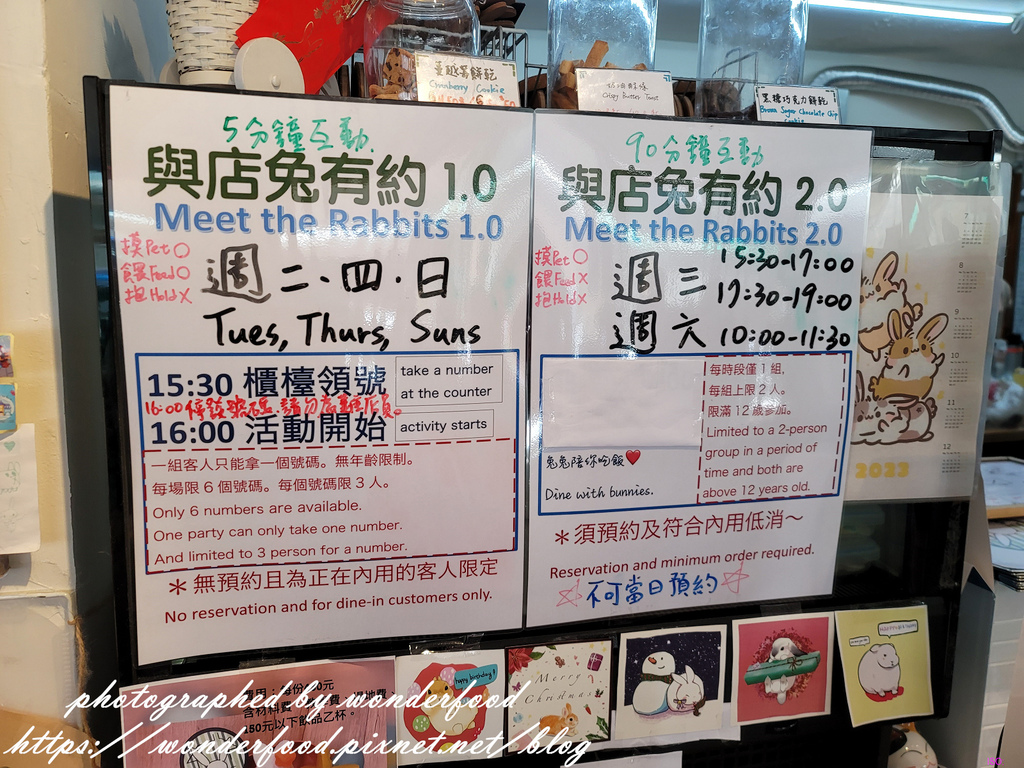 Cranberry Cookie
Crispy Butter Toast
黑糖巧克力餅乾
Brown Sugar Chocolate Chip
Cookie
5分鐘互動
與店兔有約 1.0
Meet the Rabbits 1.0
摸Pet○
餵Feed○
抱Hold×
週二·四·日
Tues, Thurs, Suns
15:30 櫃檯領號
take a number
at the counter
16:00 活動開始
activity starts
一組客人只能拿一個號碼。無年齡限制。
每場限 6 個號碼。每個號碼限 3 人。
Only 6 numbers are available.
One party can only take one number.
And limited to 3 person for a number.
＊無預約且為正在內用的客人限定
No reservation and for dine-in customers only.
90分鐘互動
與店兔有約 2.0
Meet the Rabbits 2.0
摸Pet○
餵Feed×
抱Hold×
週三 15:30-17:00
17:30-19:00
週六 10:00-11:30
每時段僅 1 組,
每組上限 2 人。
限滿 12 歲參加。
Limited to a 2-person
group in a period of
time and both are
above 12 years old.
兔兔陪你吃飯❤
Dine with bunnies.
＊須預約及符合內用低消～
Reservation and minimum order required.
☆不可當日預約☆
2023
7
8
9
10
11
12
150元以下飲品乙杯。
happy birthday!
Merry
Christmas
photographed by wonderfood
https://wonderfood.pixnet.net/blog